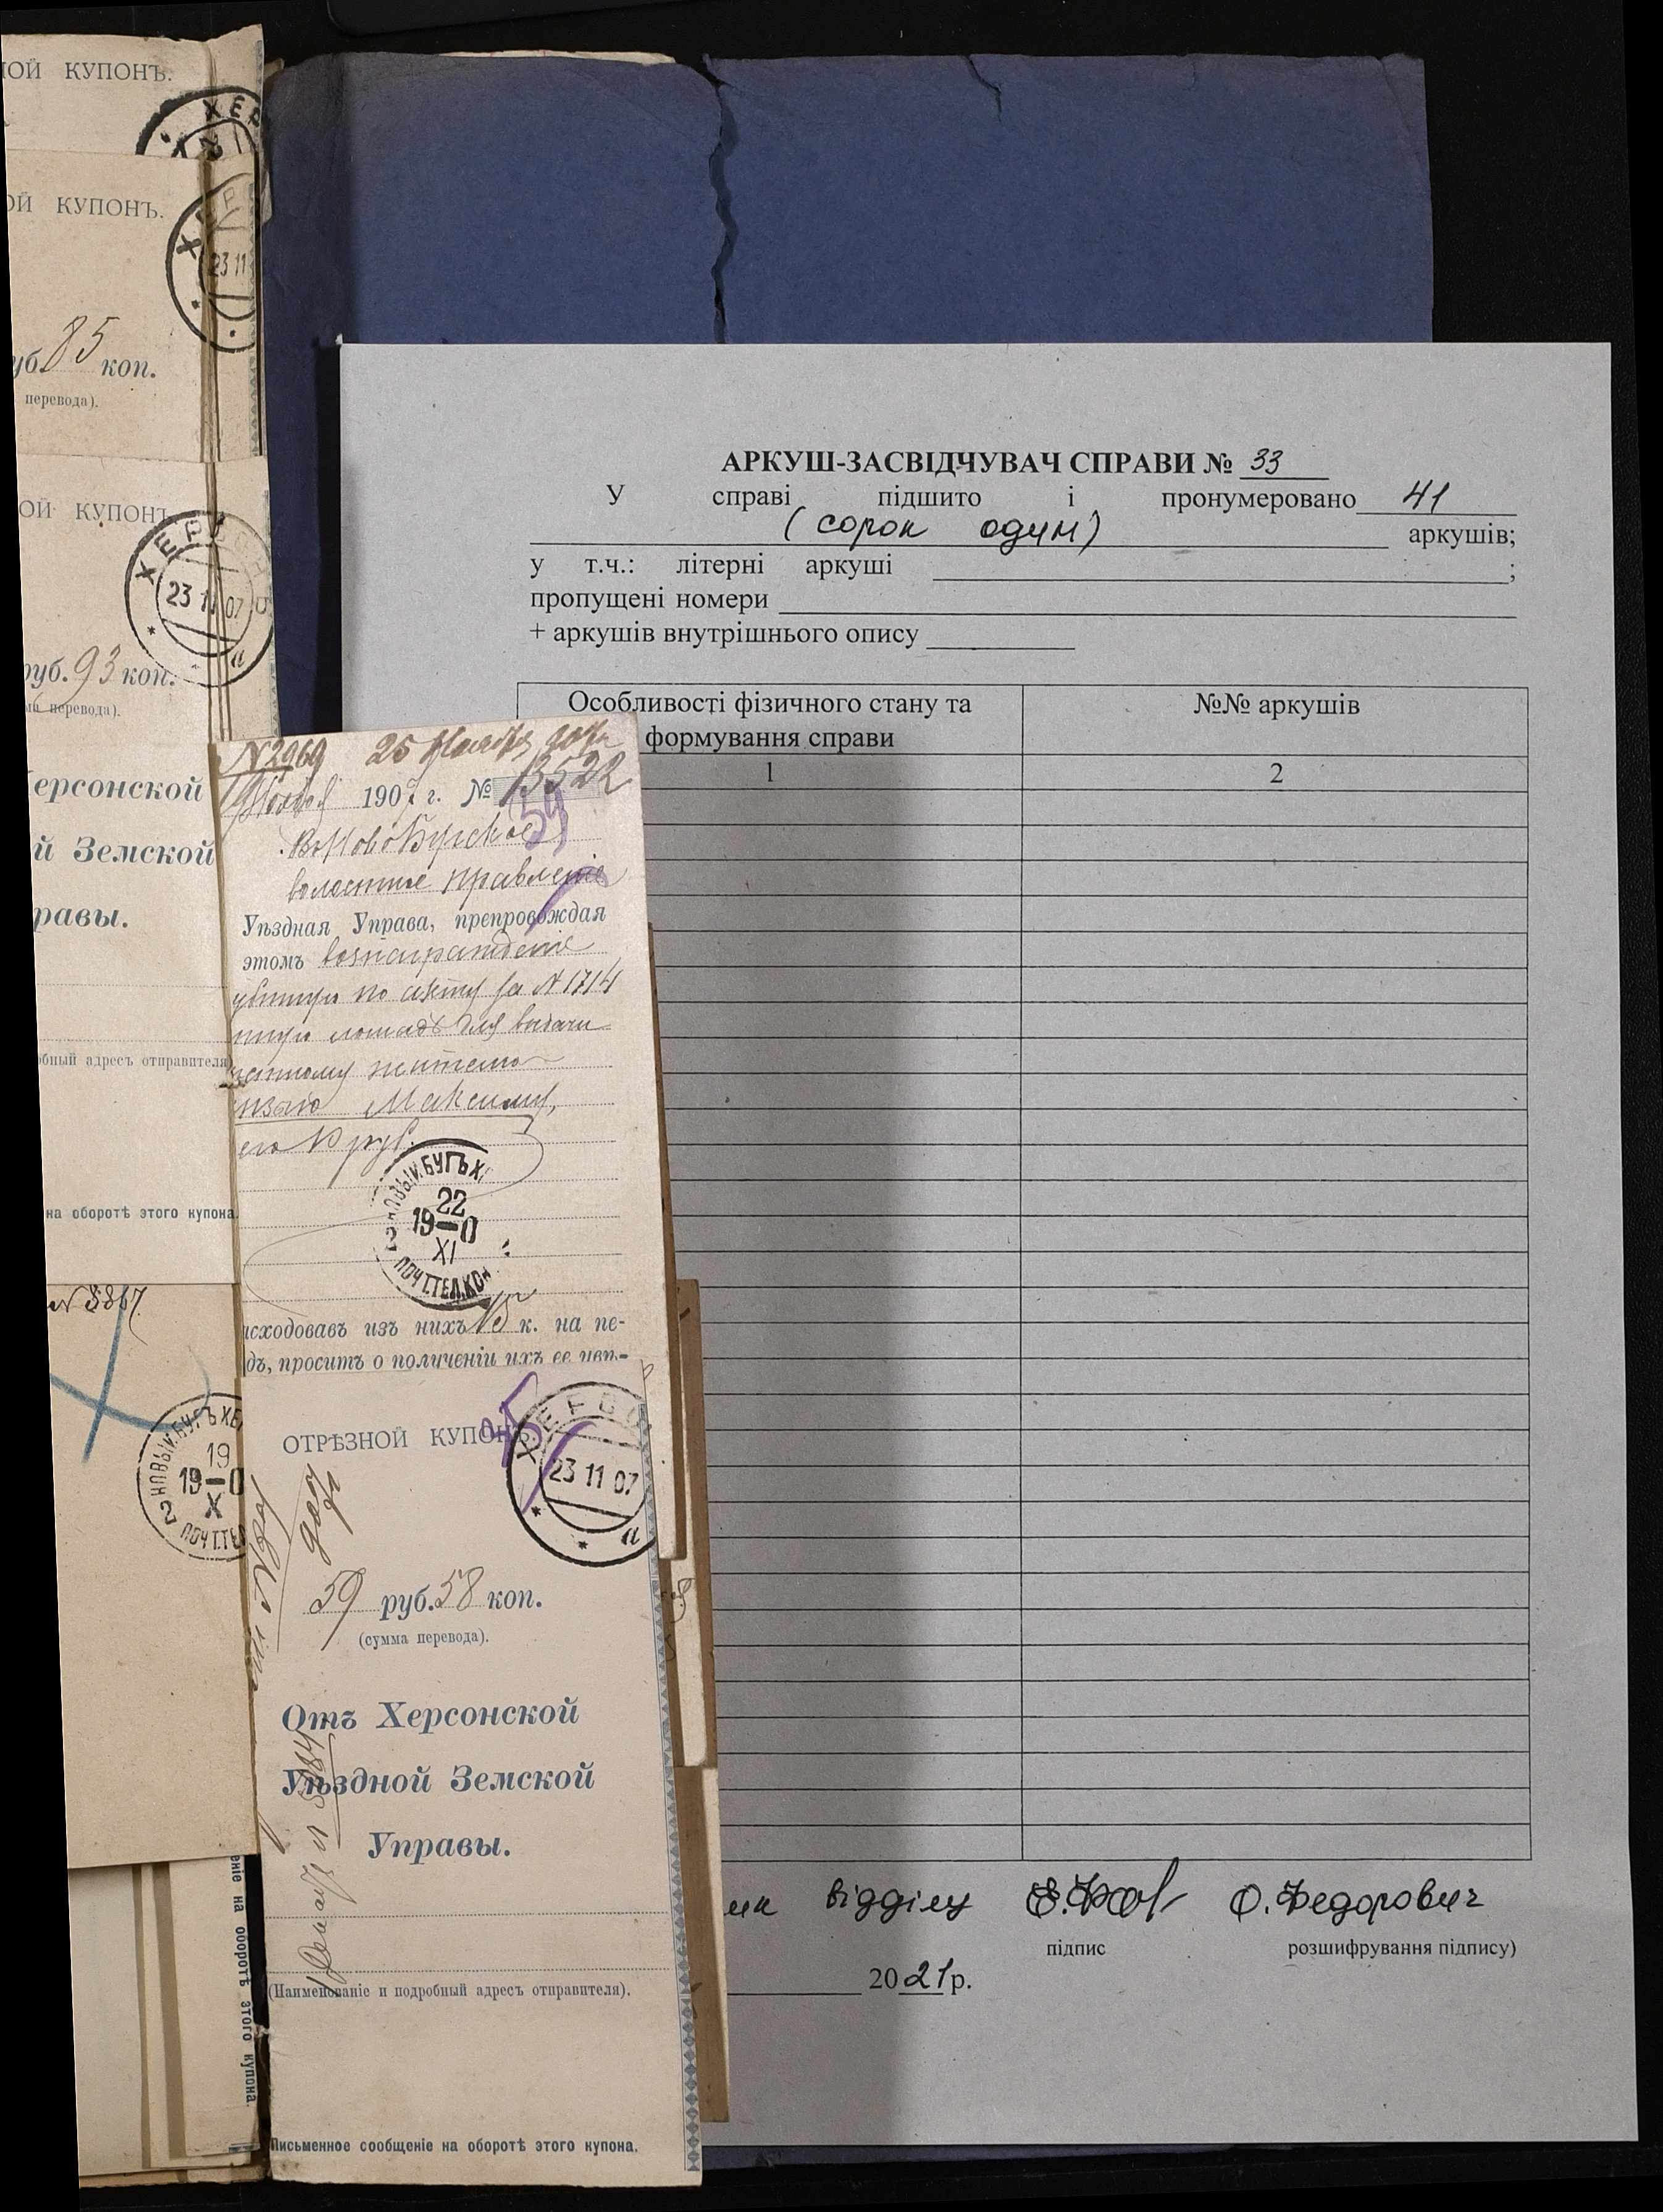 ОЙ КУПОНЪ.
ХЕР
ОЙ КУПОНЪ.
ХЕР
23 11
уб. 85 коп.
перевода).
ОЙ КУПОНЪ
ХЕРСОНЪ
23 11 07
а
руб. 93 коп.
перевода).
Херсонской
й Земской
равы.
бный адресъ отправителя
на оборотѣ этого купона.
№ 3867.
НОВЫЙ БУГЪ ХЕ
19
19-0
X
2
ПОЧТ.ТЕЛ
ніе на оборотѣ этого купона.
№2969 25 Ноября 907 г.
Ноября 1907 г. № 13522
59
Въ Ново Бугское
волостное правленіе
Уѣздная Управа, препровождая
этомъ вознагражденіе
по акту за № 1714
лошадь для выдачи
жителю
Максиму,
его 10 руб.
НОВЫЙ БУГЪ Х
22
19-0
XI
2
ПОЧТ.ТЕЛ.КОН
исходовавъ изъ нихъ 15 к. на пе-
дъ, проситъ о полученіи ихъ ее увѣ-
ОТРѢЗНОЙ КУПОНЪ.
ХЕРСО
23 11 07
а
59 руб. 58 коп.
(сумма перевода).
Отъ Херсонской
Уѣздной Земской
Управы.
(Наименованіе и подробный адресъ отправителя).
Письменное сообщеніе на оборотѣ этого купона.
АРКУШ-ЗАСВІДЧУВАЧ СПРАВИ № 33
У справі підшито і пронумеровано 41
(сорок один) аркушів;
у т.ч.: літерні аркуші ;
пропущені номери
+ аркушів внутрішнього опису
Особливості фізичного стану та формування справи
№№ аркушів
1 2
ик відділу О.Федорович
підпис розшифрування підпису)
2021р.